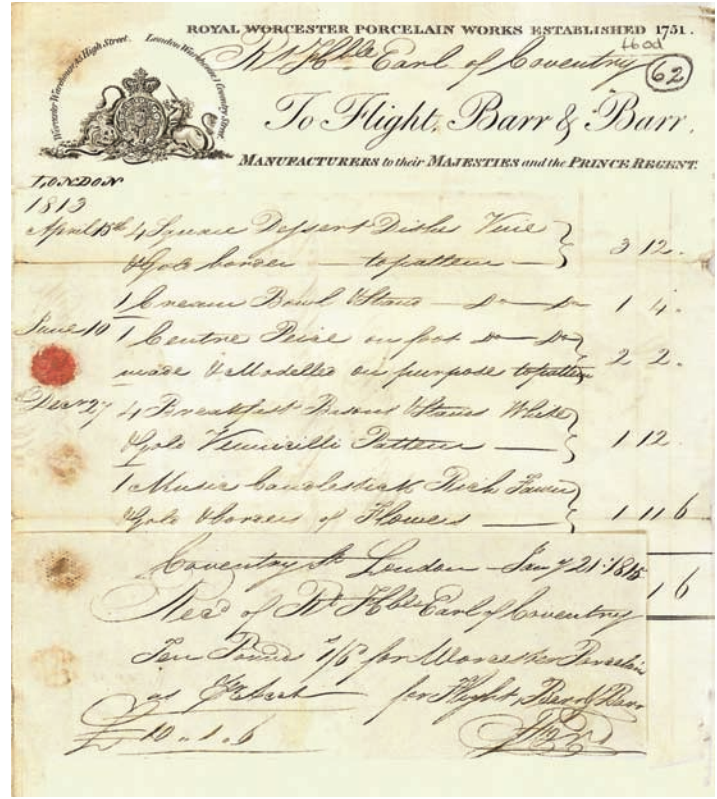 ROYAL WORCESTER PORCELAIN WORKS ESTABLISHED 1751.
Worcester Warehouse 45 High Street. London Warehouse 1 Coventry Street
Rt Hble Earl of Coventry
62
To Flight, Barr & Barr,
MANUFACTURERS to their MAJESTIES and the PRINCE REGENT.
LONDON
1813
April 15th 4 Square Dessert Dishes Vine
& Gold border — to pattern — 3 12 .
1 Cream Bowl & Stand — Do — Do 1 4 .
June 10 1 Centre Peice on foot Do — Do
made & Modelled on purpose to pattern 2 2 .
Decr 27 4 Breakfast Basons & Stands White
& Gold Vermicilli Pattern — 1 12 .
1 Music Candlestick Rich Fawn
& Gold & borders of Flowers — 1 11 6
1 6
Coventry St London — Jany 21 : 1815
Recd of Rt Hble Earl of Coventry
Ten Pounds 1/6 for Worcester Porcelain
as for Flight, Barr & Barr
£ 10 .. 1 .. 6